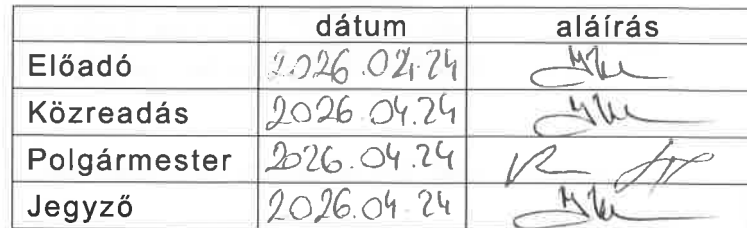 dátum aláírás
Előadó 2026.04.24
Közreadás 2026.04.24
Polgármester 2026.04.24
Jegyző 2026.04.24